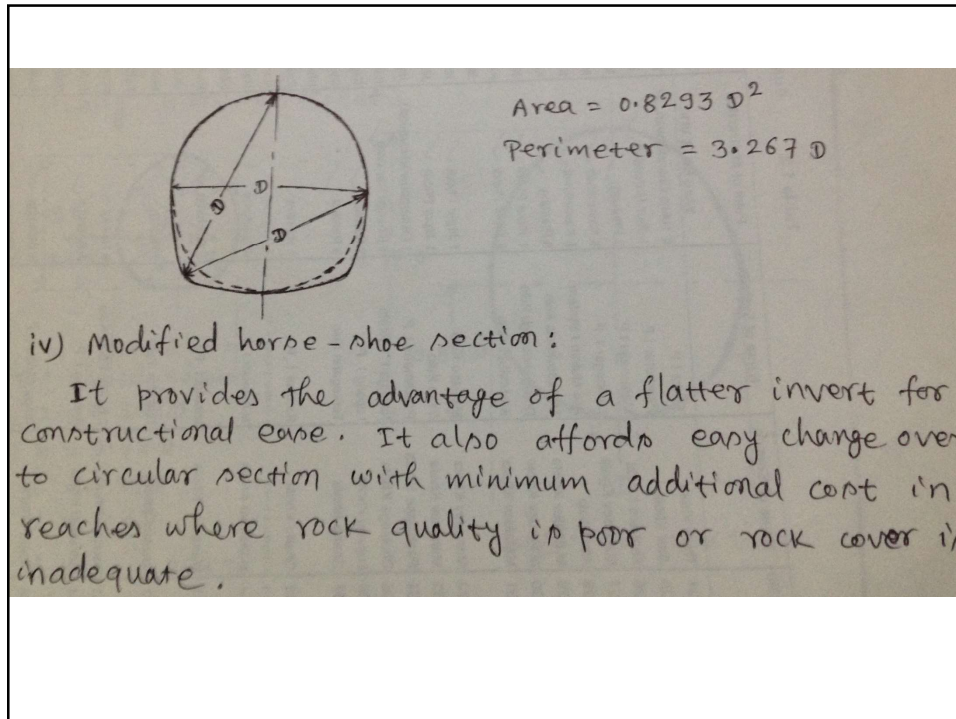 Area = 0.8293 D²
Perimeter = 3.267 D
D
D
D
iv) Modified horse-shoe section:
It provides the advantage of a flatter invert for
constructional ease. It also affords easy change over
to circular section with minimum additional cost in
reaches where rock quality is poor or rock cover is
inadequate.